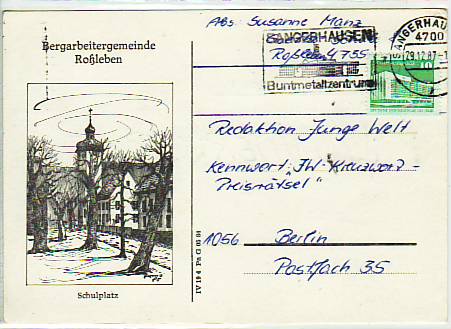 Bergarbeitergemeinde
Roßleben
Schulplatz
IV 19 4 Pa G 03 81
Abs: Susanne Manz
Roßleben 4735
SANGERHAUSEN
Buntmetallzentrum
SANGERHAU
4700
28.12.87-1
10
Redaktion Junge Welt
Kennwort „JW-Kreuzwort-
Preisrätsel"
1056 Berlin
Postfach 35